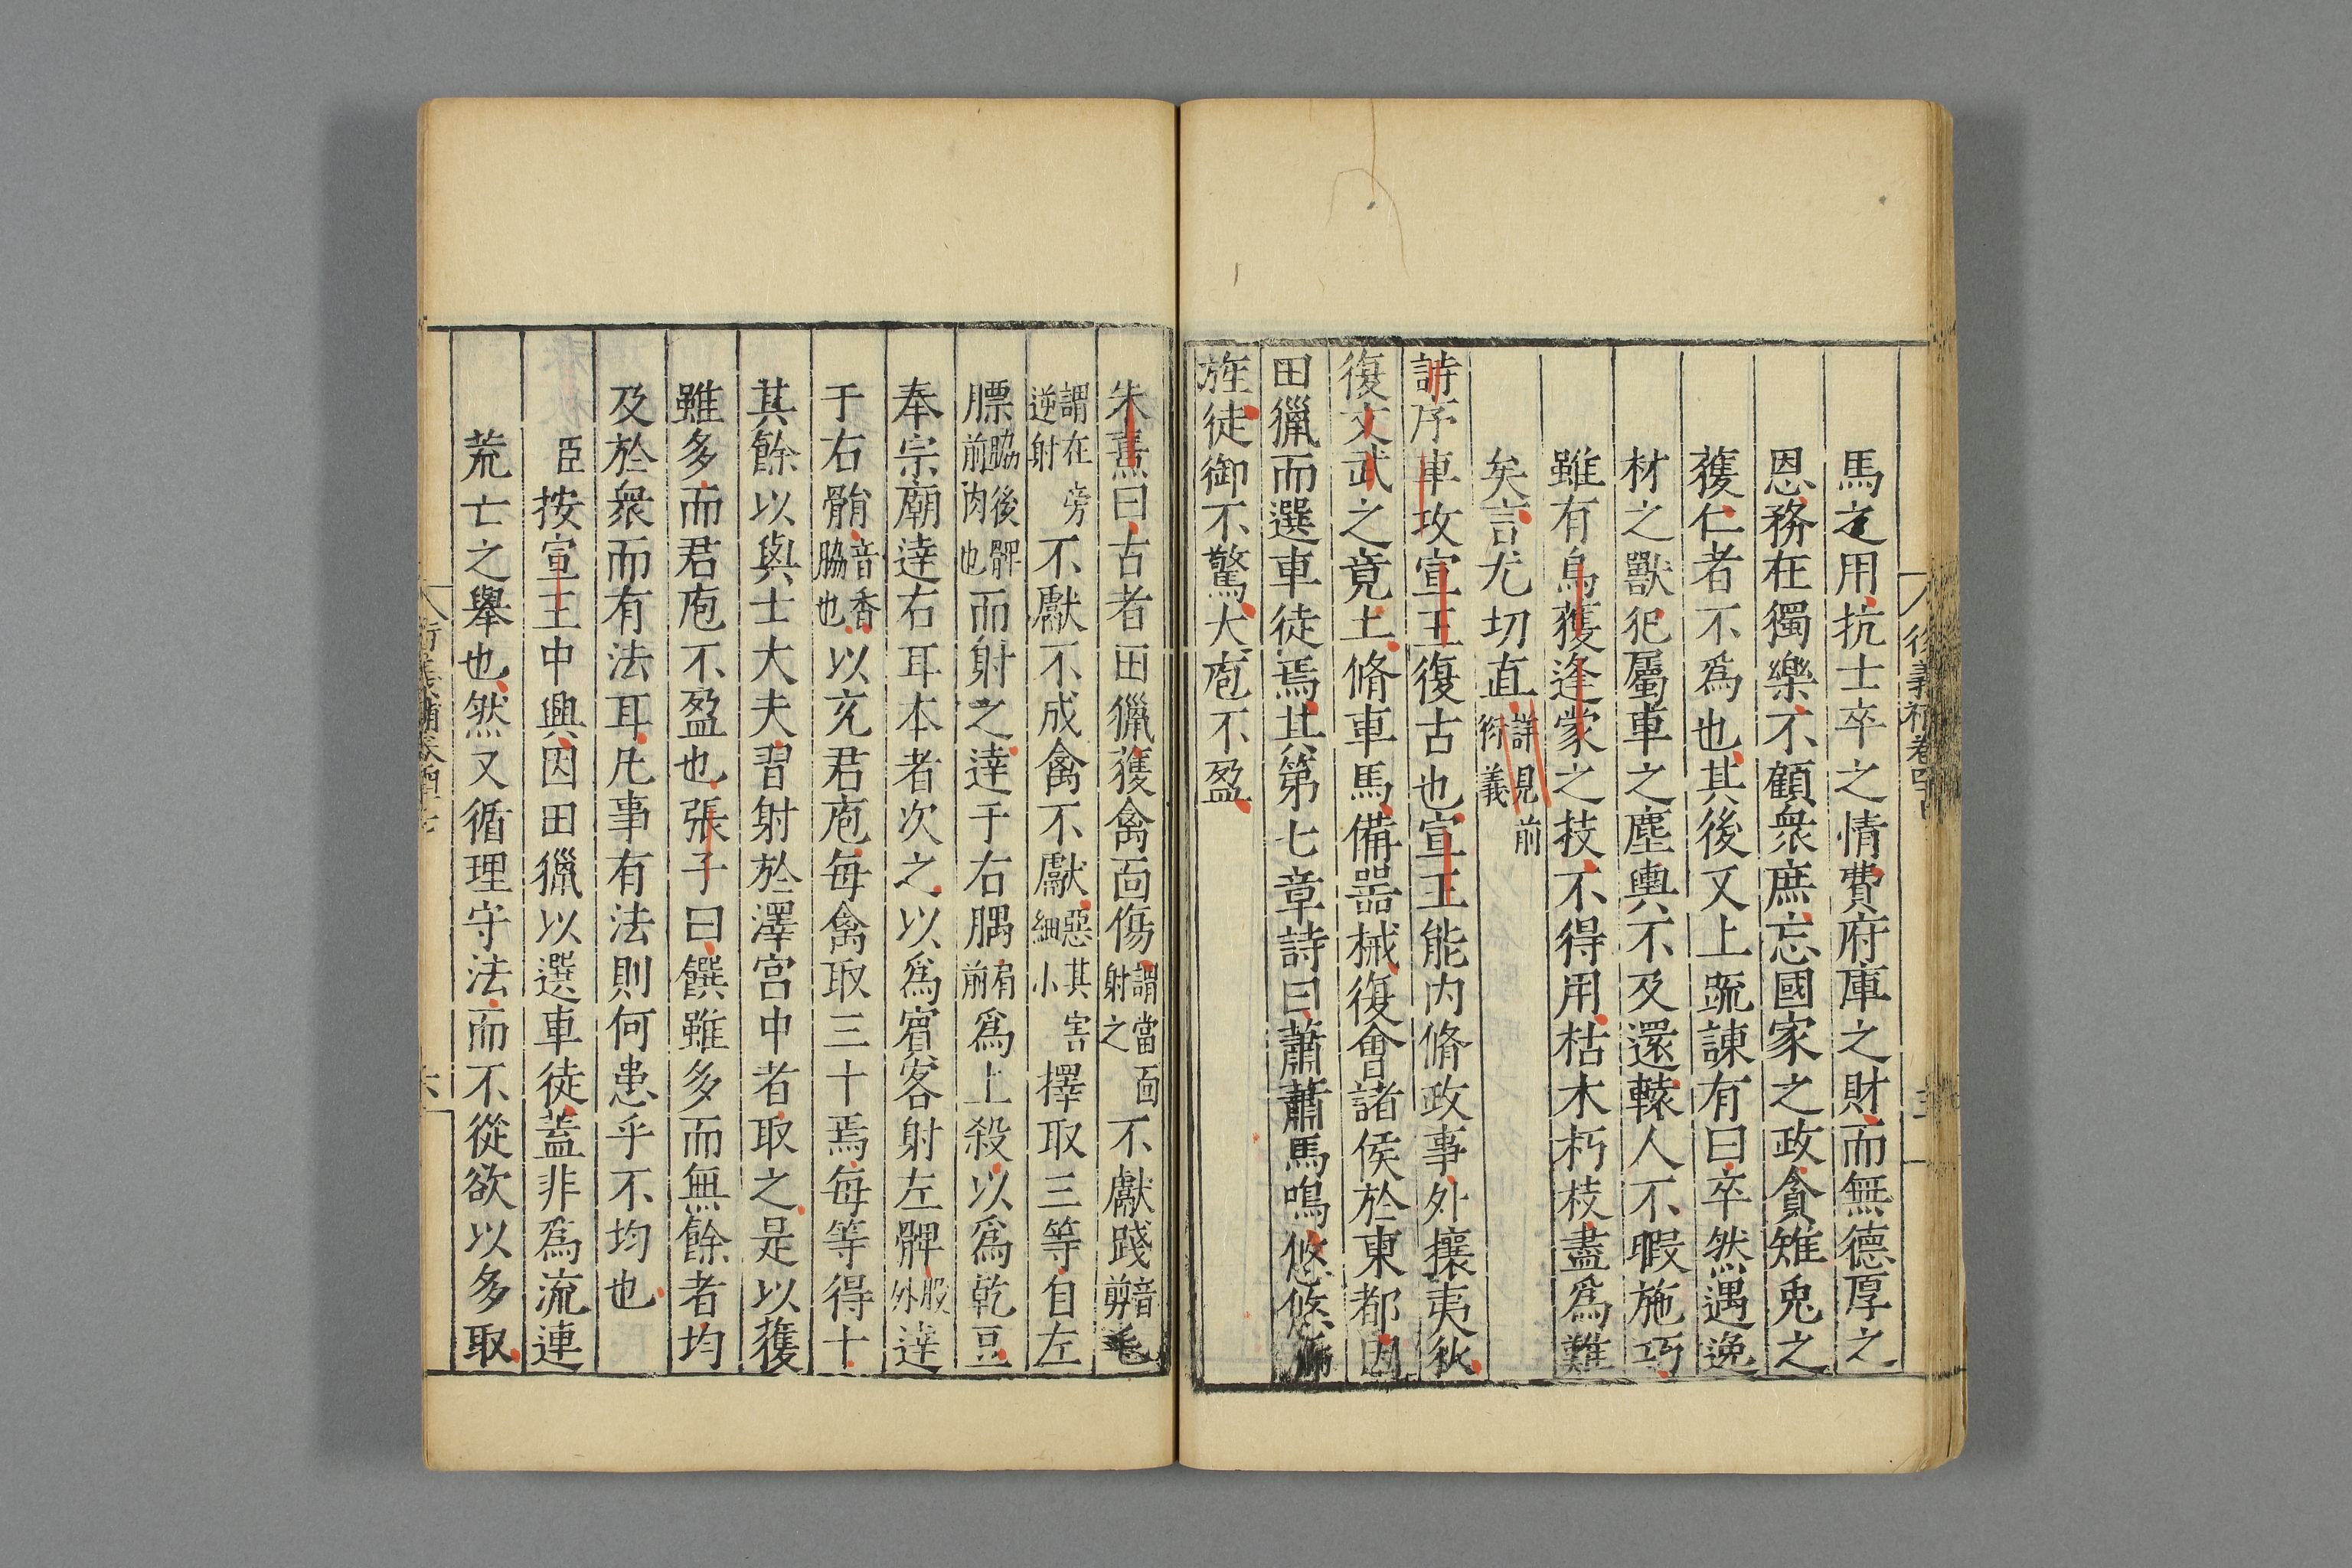 馬之用抗士卒之情費府庫之財而無德厚之
恩務在獨樂不顧衆庶忘國家之政貪雉兎之
獲仁者不爲也其後又上疏諫有曰卒然遇逸
材之獸犯屬車之塵輿不及還轅人不暇施巧
雖有烏獲逄蒙之技不得用枯木朽枝盡爲難
矣言尤切直詳見前衍義
詩序車攻宣王復古也宣王能内脩政事外攘夷狄
復文武之竟土脩車馬備器械復會諸侯於東都因
田獵而選車徒焉其第七章詩曰蕭蕭馬鳴悠悠旆
旌徒御不驚大庖不盈
朱熹曰古者田獵獲禽面傷謂當面射之不獻踐音剪毛
謂在旁逆射不獻不成禽不獻惡其害細小擇取三等自左
膘脇後髀前肉也而射之達于右腢肩前爲上殺以爲乾豆
奉宗廟達右耳本者次之以爲賓客射左髀股外達
于右䯚音香脇也以充君庖每禽取三十焉每等得十
其餘以與士大夫習射於澤宮中者取之是以獲
雖多而君庖不盈也張子曰饌雖多而無餘者均
及於衆而有法耳凡事有法則何患乎不均也
臣按宣王中興因田獵以選車徒蓋非爲流連
荒亡之舉也然又循理守法而不從欲以多取